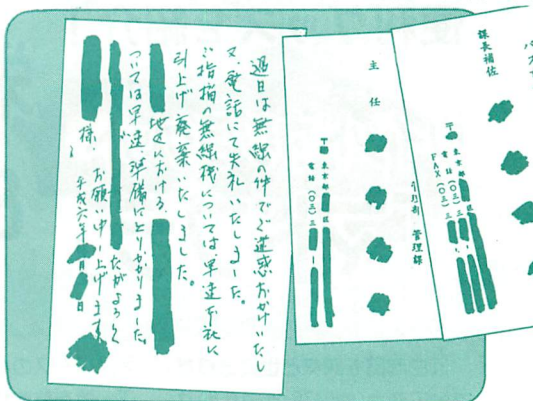 過日は無線の件でご迷惑おかけいたし
又、電話にて失礼いたしました。
ご指摘の無線機については早速本社に
引上げ廃棄いたしました。
地区における
ついては早速準備にとりかかりました。
たがよろしく
お願い申し上げます。
様
平成六年 月 日
主任
引力部 管理課
〒 東京都 区
電話(〇三)三 ー
課長補佐
〒 東京都 区
電話(〇三)三 ー
FAX(〇三)三 ー